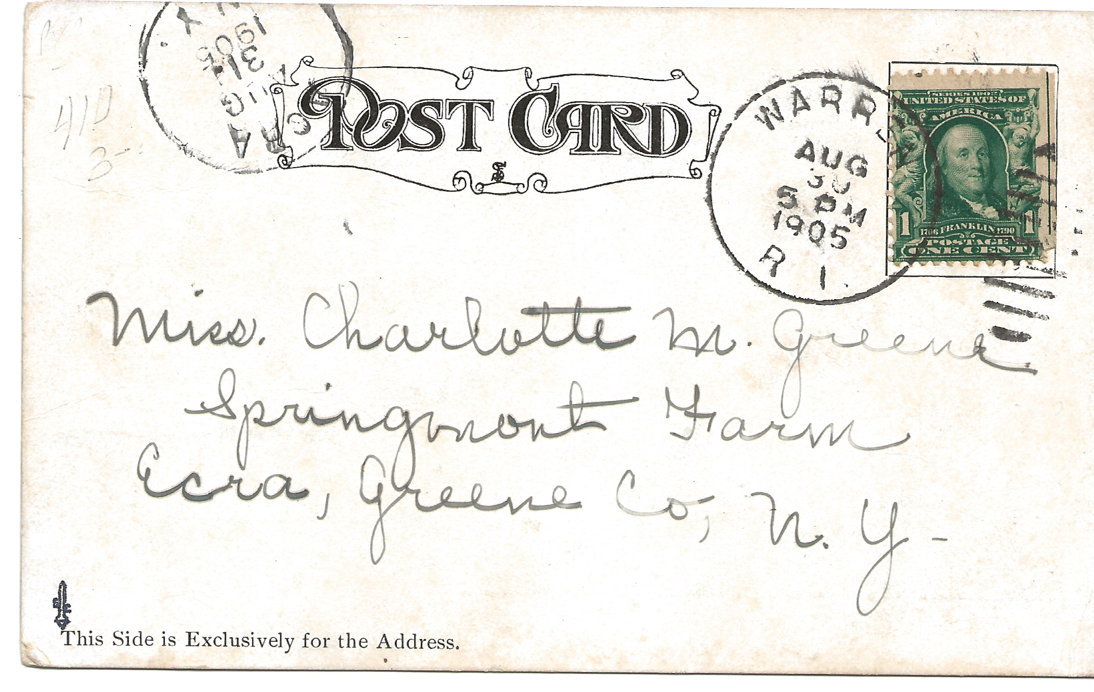 N. Y.
1905
31
AUG
ECRA
410
3-
POST CARD
WARREN
AUG
30
5 PM
1905
R I.
SERIES 1902
UNITED STATES OF
AMERICA
1 1
1706 FRANKLIN 1790
POSTAGE
ONE CENT
Miss. Charlotte M. Greene
Springmont Farm
Ecra, Greene Co, N. Y-
This Side is Exclusively for the Address.